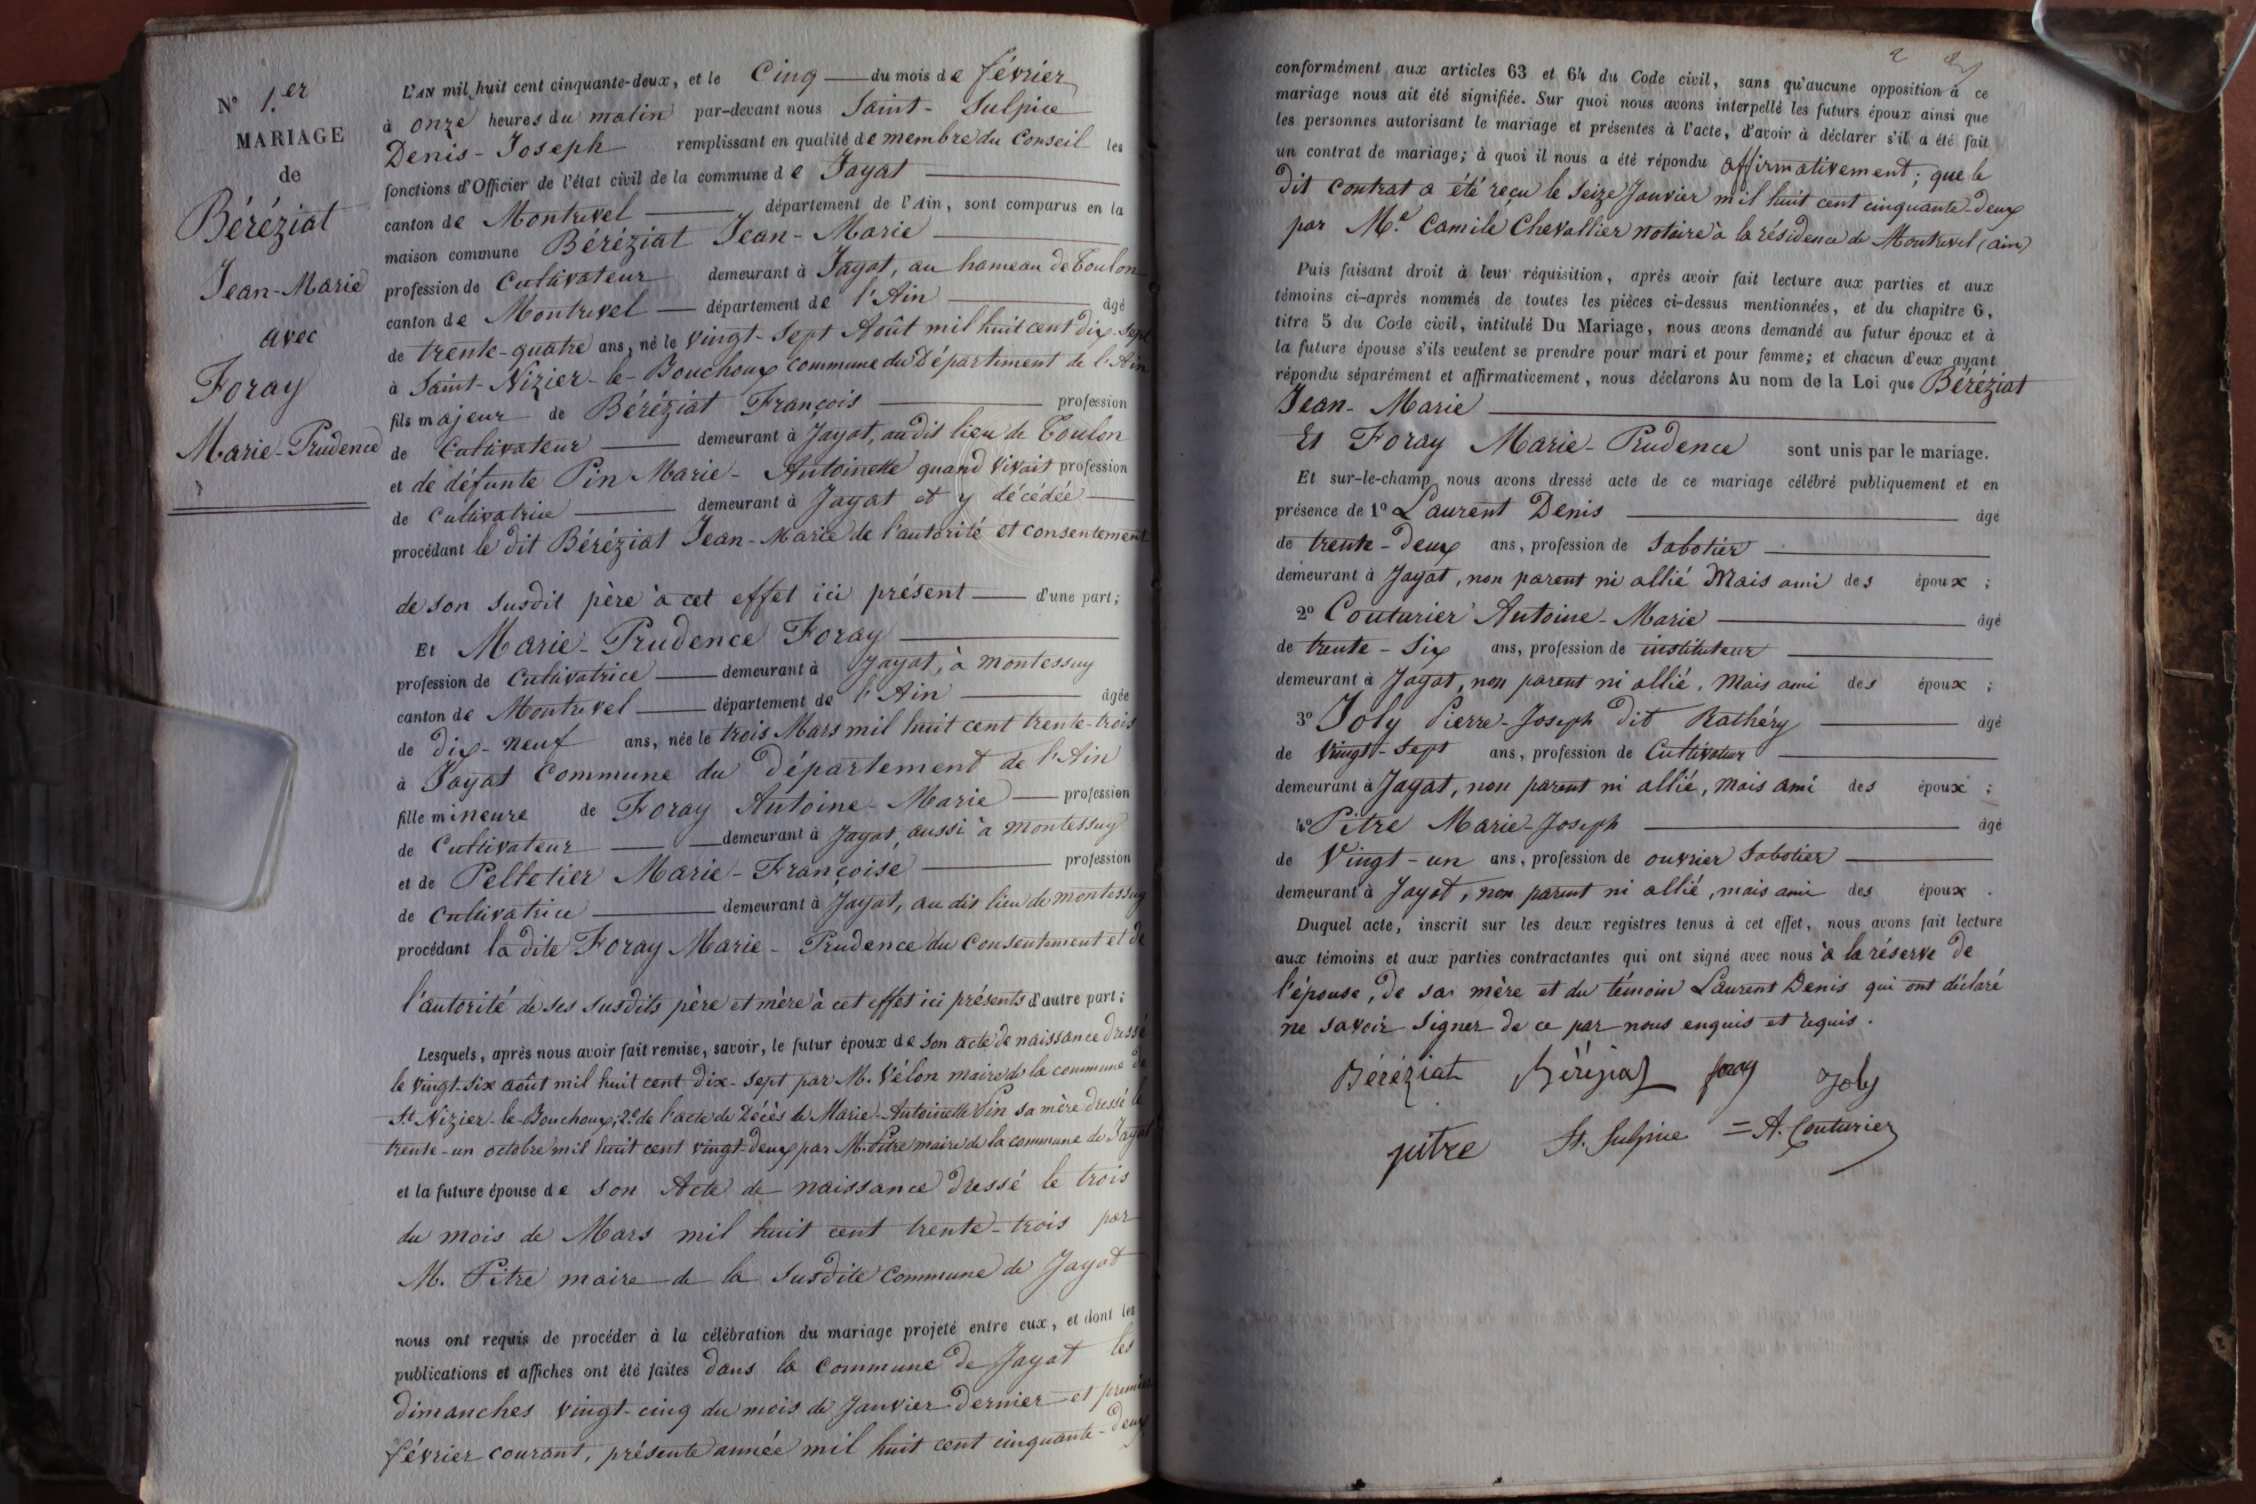 N° 1.er
MARIAGE
de
Béréziat
Jean-Marie
avec
Foray
Marie-Prudence
L'AN mil huit cent cinquante-deux, et le Cinq du mois de février
à onze heures du matin par-devant nous Saint-Sulpice
Denis-Joseph remplissant en qualité de membre du Conseil les
fonctions d'Officier de l'état civil de la commune de Jayat
canton de Montrevel département de l'Ain, sont comparus en la
maison commune Béréziat Jean-Marie
profession de Cultivateur demeurant à Jayat, au hameau de Toulon
canton de Montrevel département de l'Ain âgé
de trente-quatre ans, né le vingt-sept Août mil huit cent dix-sept
à Saint-Nizier-le-Bouchoux commune du Département de l'Ain
fils majeur de Béréziat François profession
de Cultivateur demeurant à Jayat, au dit lieu de Toulon
et de défunte Pin Marie-Antoinette quand vivait profession
de Cultivatrice demeurant à Jayat et y décédée
procédant le dit Béréziat Jean-Marie de l'autorité et consentement
de son susdit père à cet effet ici présent d'une part;
Et Marie-Prudence Foray
profession de Cultivatrice demeurant à Jayat, à montessuy
canton de Montrevel département de l'Ain âgée
de dix-neuf ans, née le trois Mars mil huit cent trente-trois
à Jayat Commune du Département de l'Ain
fille mineure de Foray Antoine-Marie profession
de Cultivateur demeurant à Jayat, aussi à montessuy
et de Pelletier Marie-Françoise profession
de Cultivatrice demeurant à Jayat, au dit lieu de montessuy
procédant la dite Foray Marie-Prudence du Consentement et de
l'autorité de ses susdits père et mère à cet effet ici présents d'autre part;
Lesquels, après nous avoir fait remise, savoir, le futur époux de son acte de naissance dressé
le vingt-six août mil huit cent dix-sept par M. Vélon maire de la commune de
St Nizier-le-Bouchoux; 2° de l'acte de Décès de Marie-Antoinette Pin sa mère dressé le
trente-un octobre mil huit cent vingt-deux par M. Pitre maire de la commune de Jayat
et la future épouse de son Acte de naissance dressé le trois
du mois de Mars mil huit cent trente-trois par
M. Pitre maire de la susdite Commune de Jayat
nous ont requis de procéder à la célébration du mariage projeté entre eux, et dont les
publications et affiches ont été faites dans la commune de Jayat les
dimanches vingt-cinq du mois de Janvier dernier et premier
février courant, présente année mil huit cent cinquante-deux
conformément aux articles 63 et 64 du Code civil, sans qu'aucune opposition à ce
mariage nous ait été signifiée. Sur quoi nous avons interpellé les futurs époux ainsi que
les personnes autorisant le mariage et présentes à l'acte, d'avoir à déclarer s'il a été fait
un contrat de mariage; à quoi il nous a été répondu affirmativement; que le
dit contrat a été reçu le seize Janvier mil huit cent cinquante-deux
par M.e Camile Chevallier notaire à la résidence de Montrevel (ain)
Puis faisant droit à leur réquisition, après avoir fait lecture aux parties et aux
témoins ci-après nommés de toutes les pièces ci-dessus mentionnées, et du chapitre 6,
titre 5 du Code civil, intitulé Du Mariage, nous avons demandé au futur époux et à
la future épouse s'ils veulent se prendre pour mari et pour femme; et chacun d'eux ayant
répondu séparément et affirmativement, nous déclarons Au nom de la Loi que Béréziat
Jean-Marie
Et Foray Marie-Prudence sont unis par le mariage.
Et sur-le-champ nous avons dressé acte de ce mariage célébré publiquement et en
présence de 1° Laurent Denis âgé
de trente-deux ans, profession de Sabotier
demeurant à Jayat, non parent ni allié Mais ami des époux ;
2° Couturier Antoine-Marie âgé
de trente-six ans, profession de instituteur
demeurant à Jayat, non parent ni allié, Mais ami des époux ;
3° Joly Pierre-Joseph dit Rathéry âgé
de vingt-sept ans, profession de Cultivateur
demeurant à Jayat, non parent ni allié, mais ami des époux ;
4° Pitre Marie-Joseph âgé
de Vingt-un ans, profession de ouvrier Sabotier
demeurant à Jayat, non parent ni allié, mais ami des époux .
Duquel acte, inscrit sur les deux registres tenus à cet effet, nous avons fait lecture
aux témoins et aux parties contractantes qui ont signé avec nous à la réserve de
l'épouse, de sa mère et du témoin Laurent Denis qui ont déclaré
ne savoir signer de ce par nous enquis et requis.
Béréziat Béréziat foray Joly
pitre St. Sulpice = A. Couturier